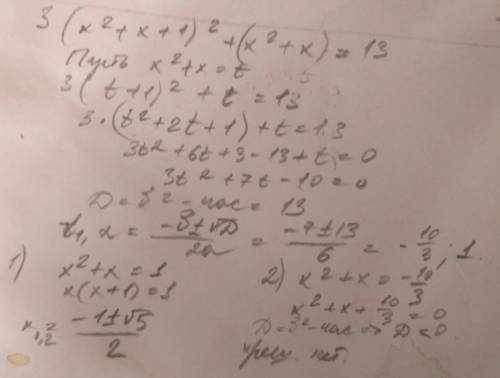 3(x²+x+1)²+(x²+x)=13
Пусть x²+x=t
3(t+1)²+t=13
3·(t²+2t+1)+t=13
3t²+6t+3-13+t=0
3t²+7t-10=0
D=b²-4ac=13
t₁,₂=(-b±√D)/2a=(-7±13)/6=-10/3; 1.
1) x²+x=1
x(x+1)=1
x₁,₂=(-1±√5)/2
2) x²+x=-10/3
x²+x+10/3=0
D=b²-4ac=> D<0
нет.